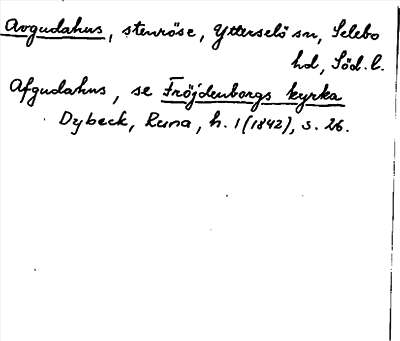 Avgudahus, stenröse, Ytterselö sn, Selebo
hd, Söd. l.
Afgudahus, se Fröjdenborgs kyrka
Dybeck, Runa, h. 1 (1842), s. 26.